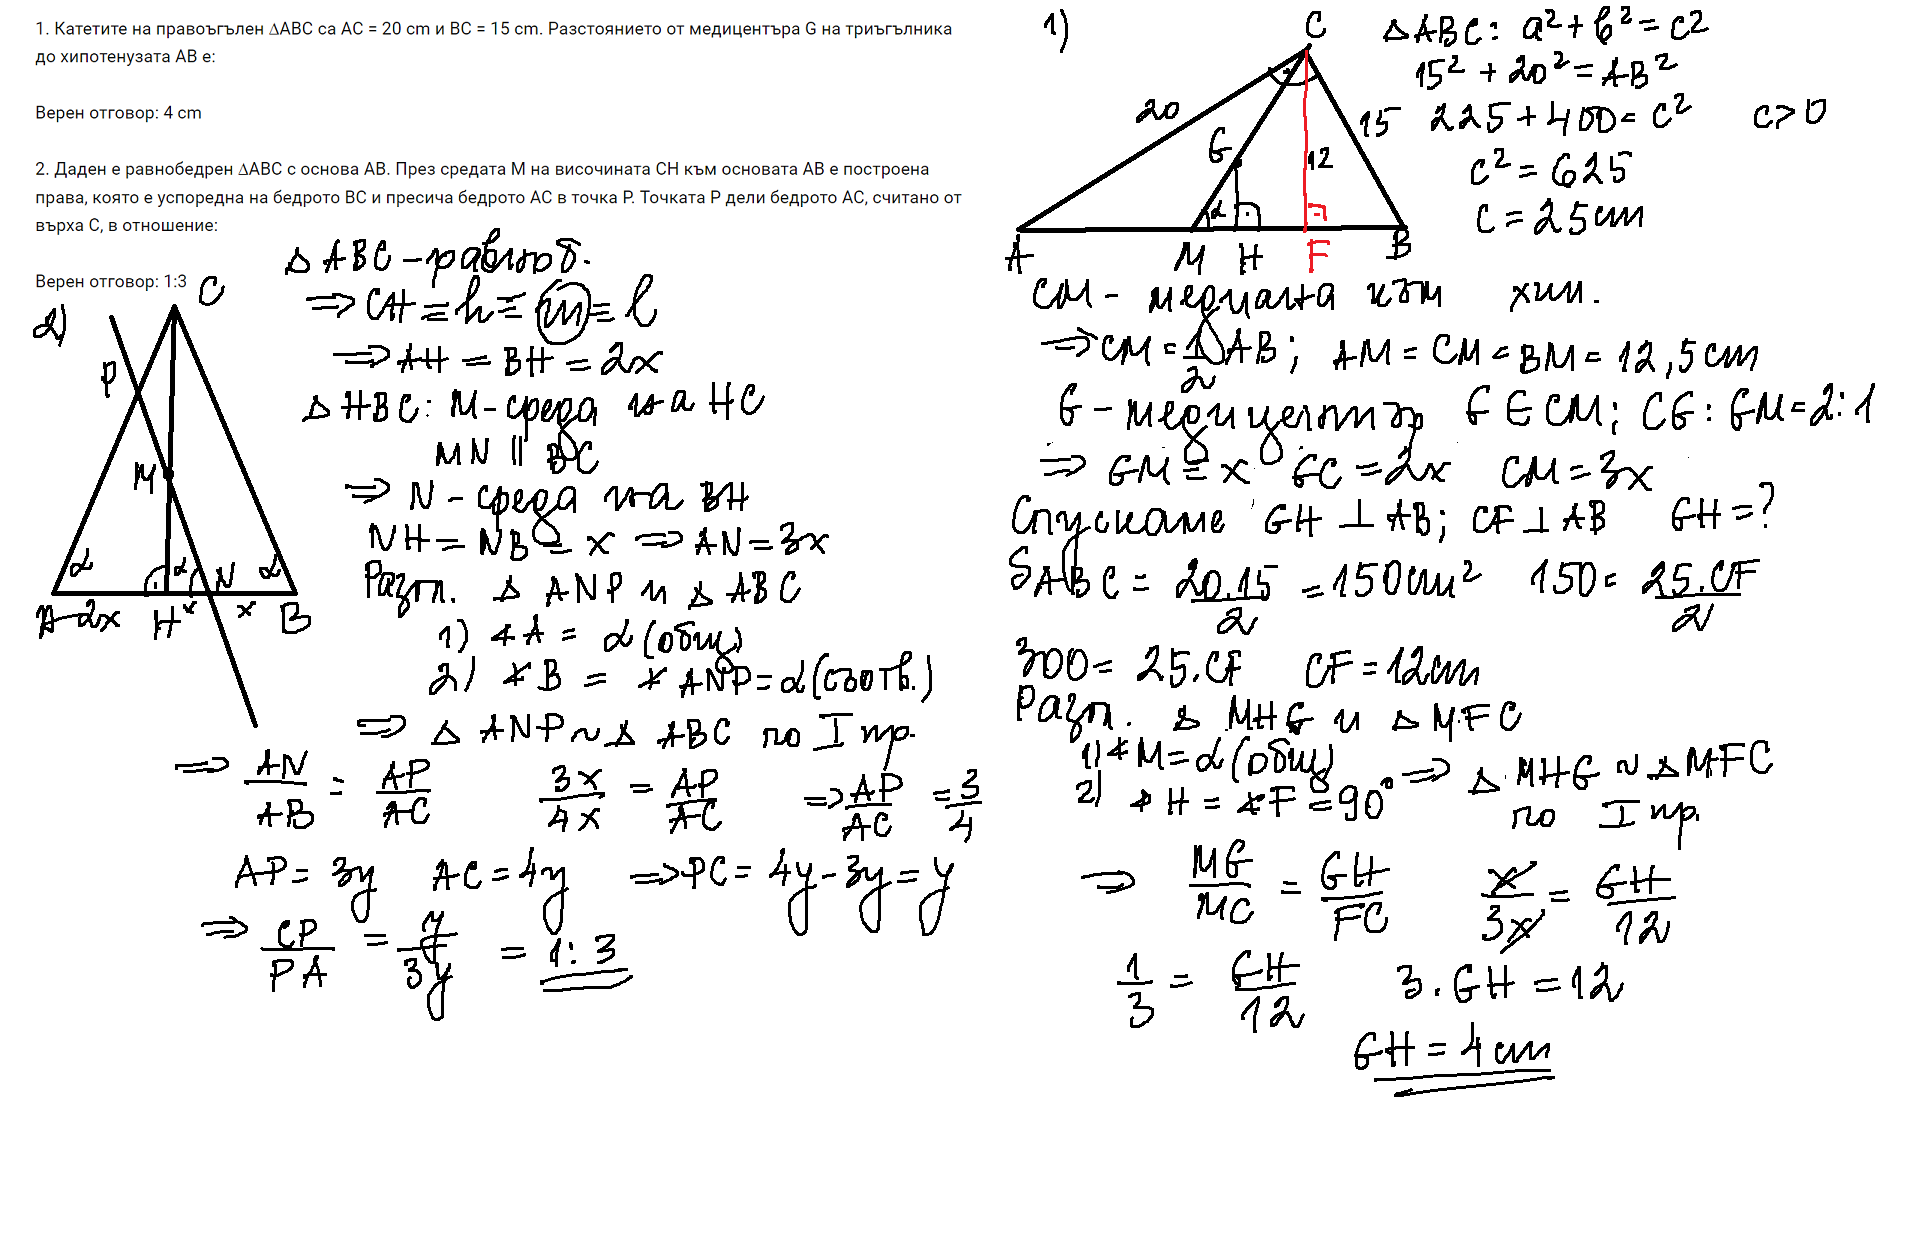 1. Катетите на правоъгълен ∆ABC са AC = 20 cm и BC = 15 cm. Разстоянието от медицентъра G на триъгълника
до хипотенузата AB е:
Верен отговор: 4 cm
2. Даден е равнобедрен ∆ABC с основа AB. През средата M на височината CH към основата AB е построена
права, която е успоредна на бедрото BC и пресича бедрото AC в точка P. Точката P дели бедрото AC, считано от
върха C, в отношение:
Верен отговор: 1:3
2)
C
P
M
α α N α
A 2x H x x B
∆ ABC – равноб.
⇒ CH ≡ h ≡ m ≡ l
⇒ AH = BH = 2x
∆ HBC: M - среда на HC
MN || BC
⇒ N - среда на BH
NH = NB = x ⇒ AN = 3x
Разгл. ∆ ANP и ∆ ABC
1) ∢A = α (общ)
2) ∢B = ∢ANP = α (съотв.)
⇒ ∆ ANP ~ ∆ ABC по I пр.
⇒ AN/AB = AP/AC 3x/4x = AP/AC ⇒ AP/AC = 3/4
AP = 3y AC = 4y ⇒ PC = 4y - 3y = y
⇒ CP/PA = y/3y = 1:3
1)
C
20
15
G
12
α
A M H F B
∆ ABC: a² + b² = c²
15² + 20² = AB²
225 + 400 = c² c > 0
c² = 625
c = 25 cm
CM - медиана към хип.
⇒ CM = 1/2 AB; AM = CM = BM = 12,5 cm
G - медицентър G ∈ CM; CG : GM = 2:1
⇒ GM = x GC = 2x CM = 3x
Спускаме GH ⊥ AB; CF ⊥ AB GH = ?
S ABC = 20.15/2 = 150 cm² 150 = 25.CF/2
300 = 25.CF CF = 12 cm
Разгл. ∆ MHG и ∆ MFC
1) ∢M = α (общ)
2) ∢H = ∢F = 90° ⇒ ∆ MHG ~ ∆ MFC
по I пр.
⇒ MG/MC = GH/FC x/3x = GH/12
1/3 = GH/12 3.GH = 12
GH = 4 cm